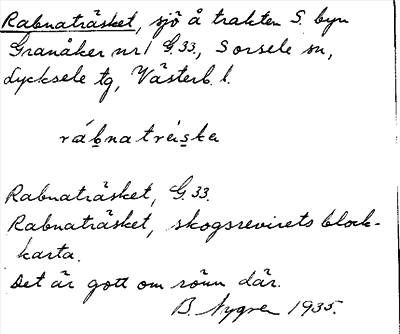 Rabnaträsket, sjö å trakten S. byn
Granåker nr 1 G.33., Sorsele sn,
Lycksele tg, Västerb. l.
rábnatreiska
Rabnaträsket, G.33.
Rabnaträsket, skogsrevirets block-
karta.
Det är gott om rönn där.
B. Nygren 1935.